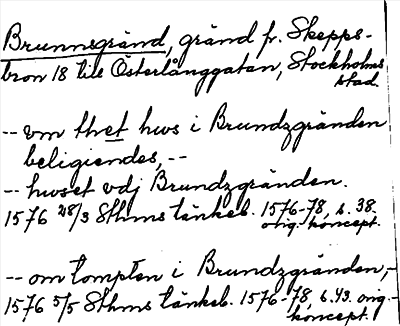 Brunnsgränd, gränd fr. Skepps-
bron 18 till Österlånggatan, Stockholms
stad.
-- vm thet hws i Brundzgränden
beligiendes, --
-- hwset vdj Brundzgränden.
1576 28/3 Sthms tänkeb. 1576-78, s. 38.
orig. koncept.
-- om tompten i Brundzgränden,-
1576 5/5 Sthms tänkeb. 1576-78, s. 43. orig.-
koncept.